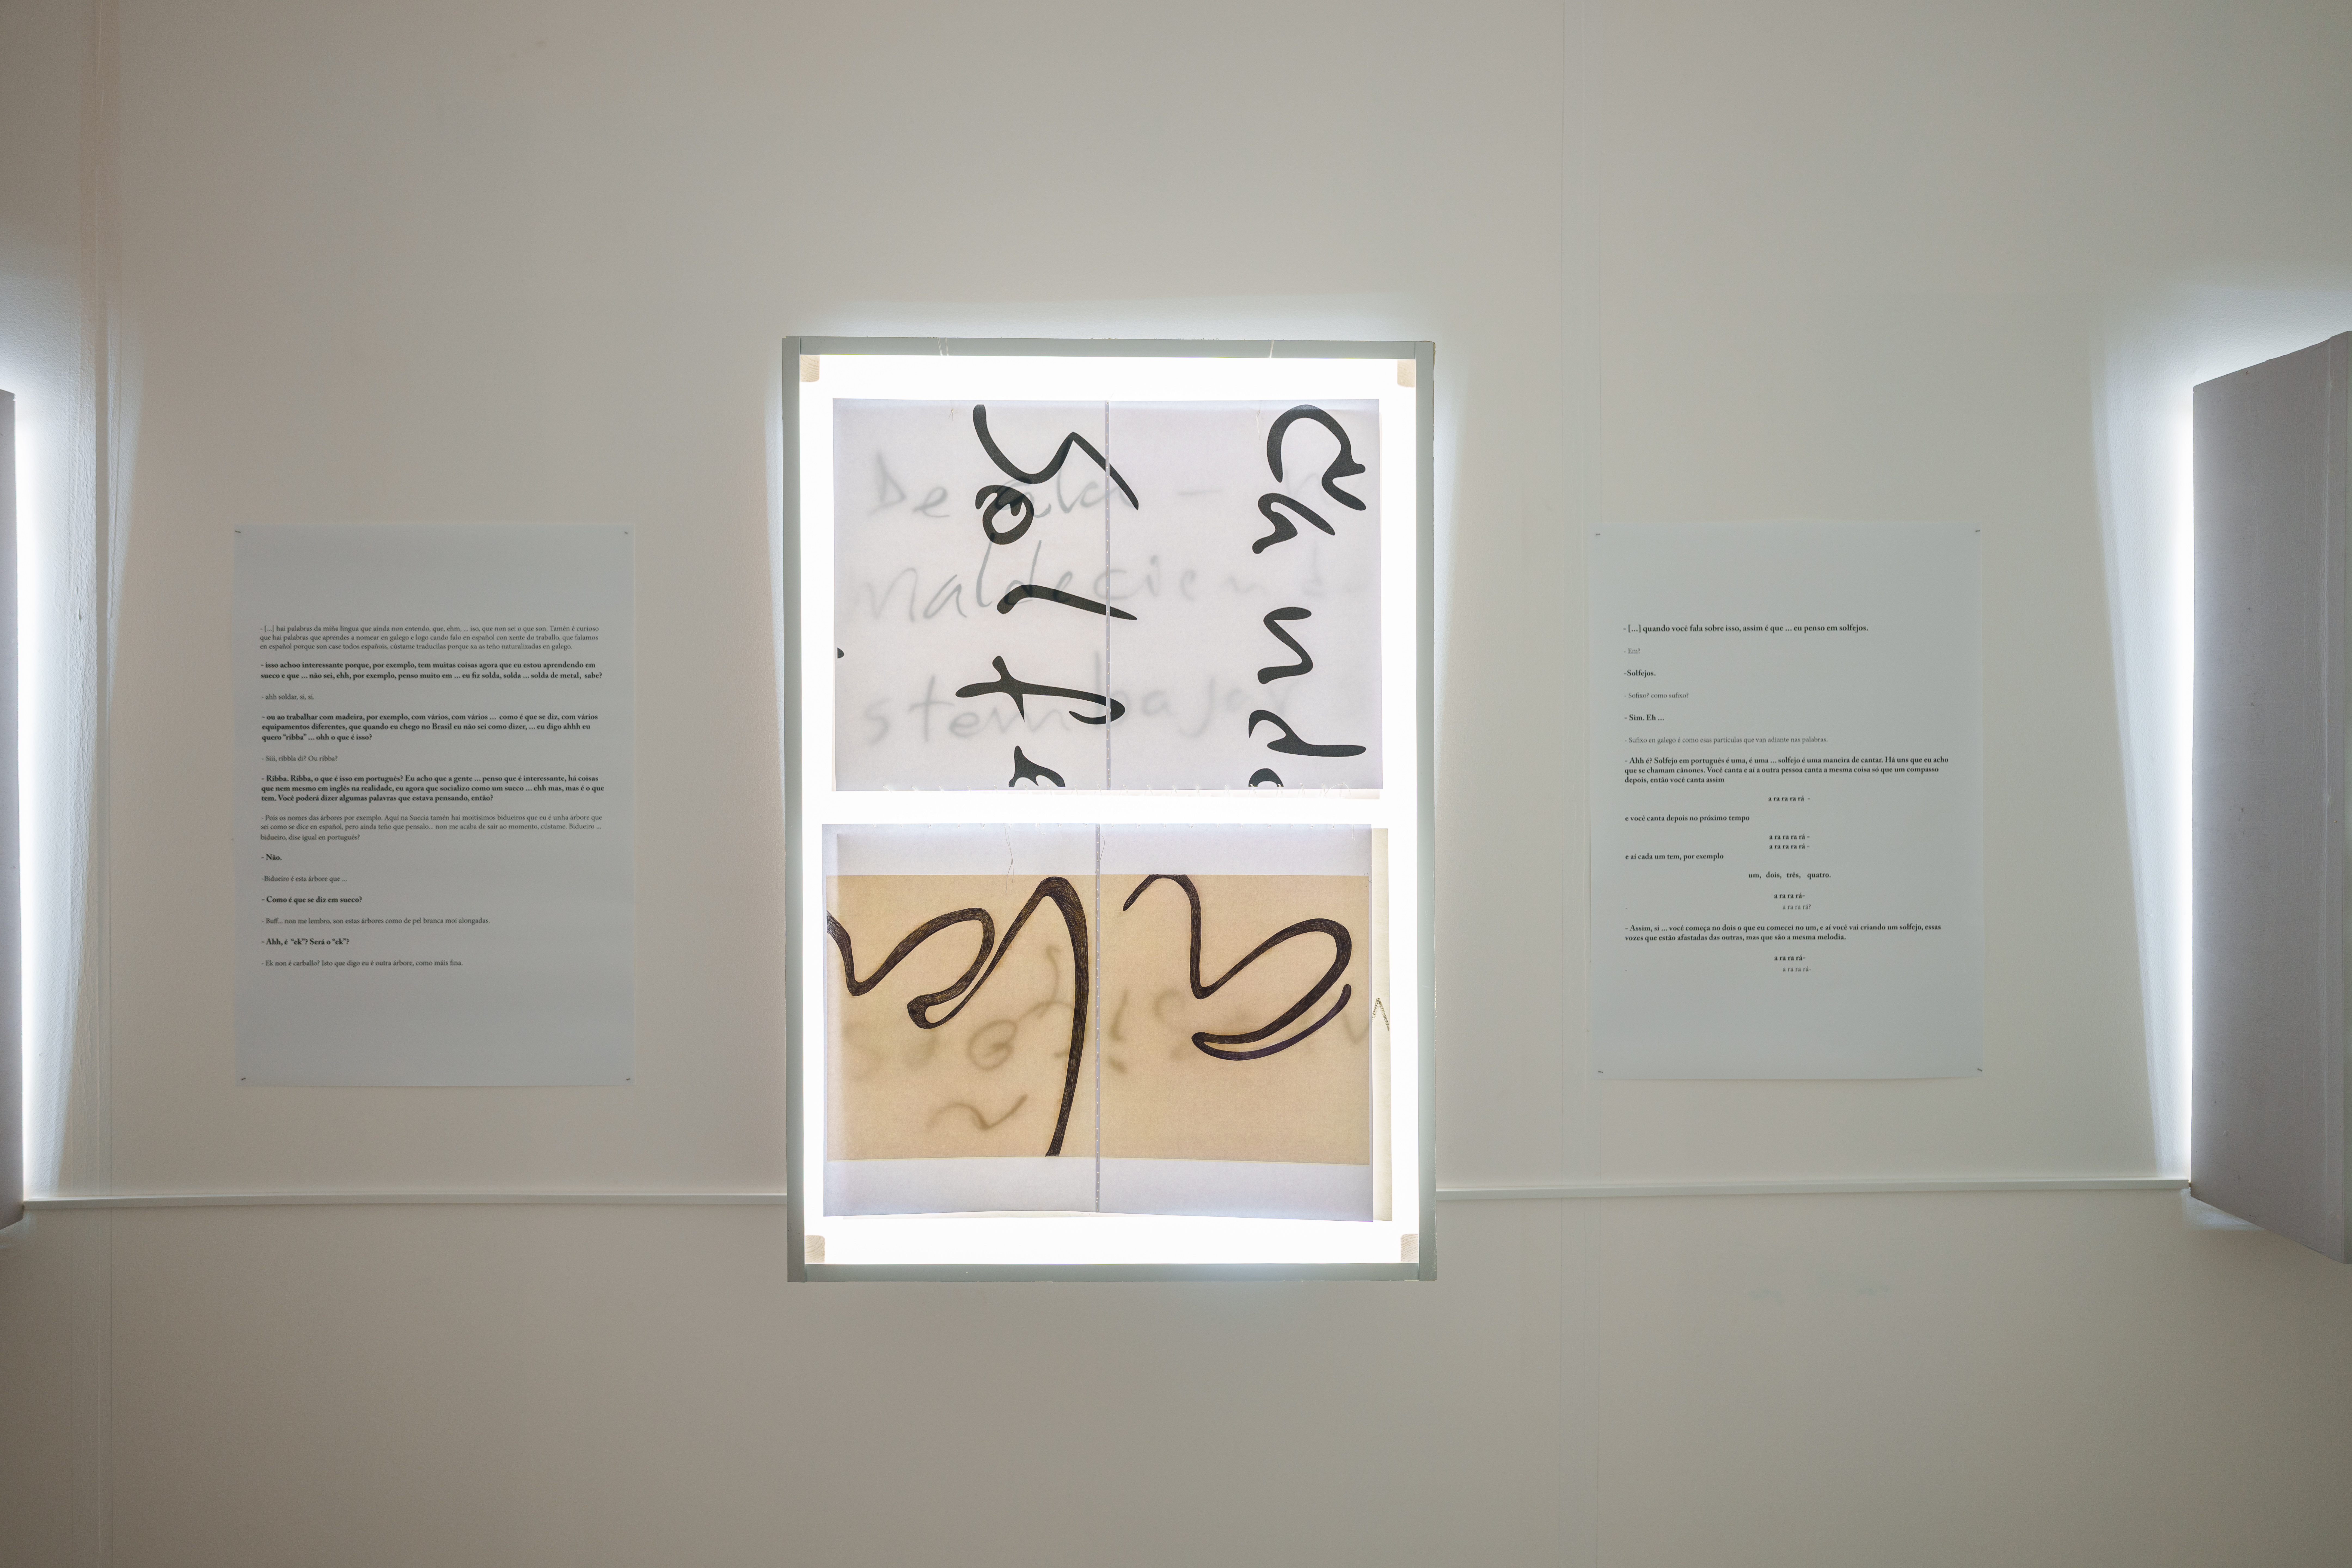 - [...] hai palabras da miña lingua que ainda non entendo, que, ehm, ... iso, que non sei o que son. Tamén é curioso
que hai palabras que aprendes a nomear en galego e logo cando falo en español con xente do traballo, que falamos
en español porque son case todos españois, cústame traducilas porque xa as teño naturalizadas en galego.
- isso achoo interessante porque, por exemplo, tem muitas coisas agora que eu estou aprendendo em
sueco e que ... não sei, ehh, por exemplo, penso muito em ... eu fiz solda, solda ... solda de metal, sabe?
- ahh soldar, si, si.
- ou ao trabalhar com madeira, por exemplo, com vários, com vários ... como é que se diz, com vários
equipamentos diferentes, que quando eu chego no Brasil eu não sei como dizer, ... eu digo ahhh eu
quero "ribba" ... ohh o que é isso?
- Siii, ribbla di? Ou ribba?
- Ribba. Ribba, o que é isso em português? Eu acho que a gente ... penso que é interessante, há coisas
que nem mesmo em inglês na realidade, eu agora que socializo como um sueco ... ehh mas, mas é o que
tem. Você poderá dizer algumas palavras que estava pensando, então?
- Pois os nomes das árbores por exemplo. Aquí na Suecia tamén hai moitísimos bidueiros que eu é unha árbore que
sei como se dice en español, pero ainda teño que pensalo... non me acaba de sair ao momento, cústame. Bidueiro ...
bidueiro, dise igual en portugués?
- Não.
-Bidueiro é esta árbore que ...
- Como é que se diz em sueco?
- Buff... non me lembro, son estas árbores como de pel branca moi alongadas.
- Ahh, é "ek"? Será o "ek"?
- Ek non é carballo? Isto que digo eu é outra árbore, como máis fina.
De ala —
Maldecien
stembajar
- [...] quando você fala sobre isso, assim é que ... eu penso em solfejos.
- Em?
-Solfejos.
- Sofixo? como sufixo?
- Sim. Eh ...
- Sufixo en galego é como esas partículas que van adiante nas palabras.
- Ahh é? Solfejo em português é uma, é uma ... solfejo é uma maneira de cantar. Há uns que eu acho
que se chamam cânones. Você canta e aí a outra pessoa canta a mesma coisa só que um compasso
depois, então você canta assim
a ra ra ra rá -
e você canta depois no próximo tempo
a ra ra ra rá -
a ra ra ra rá -
e aí cada um tem, por exemplo
um, dois, três, quatro.
a ra ra rá-
a ra ra rá?
- Assim, si ... você começa no dois o que eu comecei no um, e aí você vai criando um solfejo, essas
vozes que estão afastadas das outras, mas que são a mesma melodia.
a ra ra rá-
a ra ra rá-